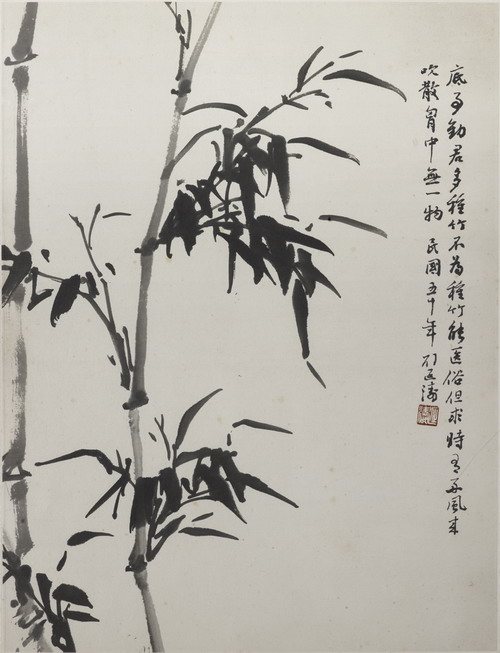 底事勸君多種竹不為種竹能医俗但求時有好風来
吹散胷中無一物 民國五十年